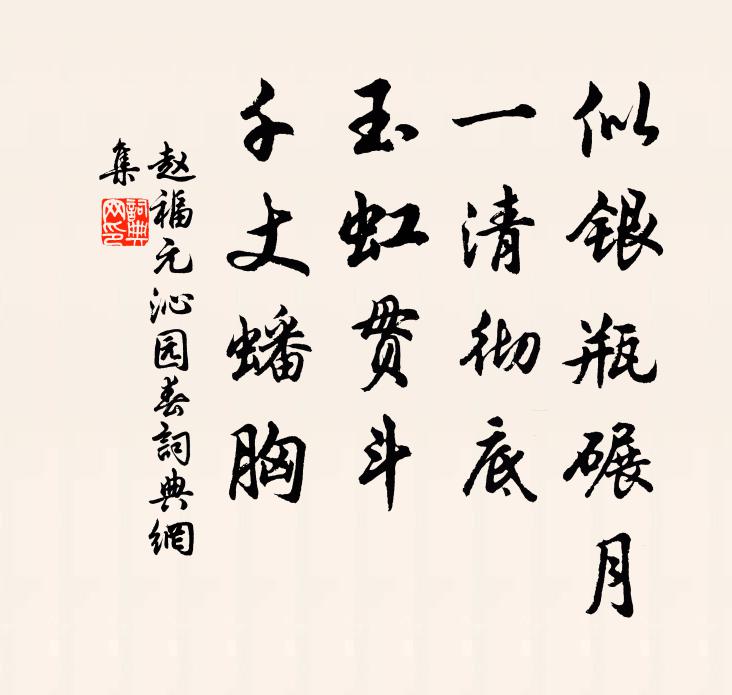 似银瓶碾月
一清彻底
玉虹贯斗
千丈蟠胸
赵福元沁园春词典網
集
詞典
网印